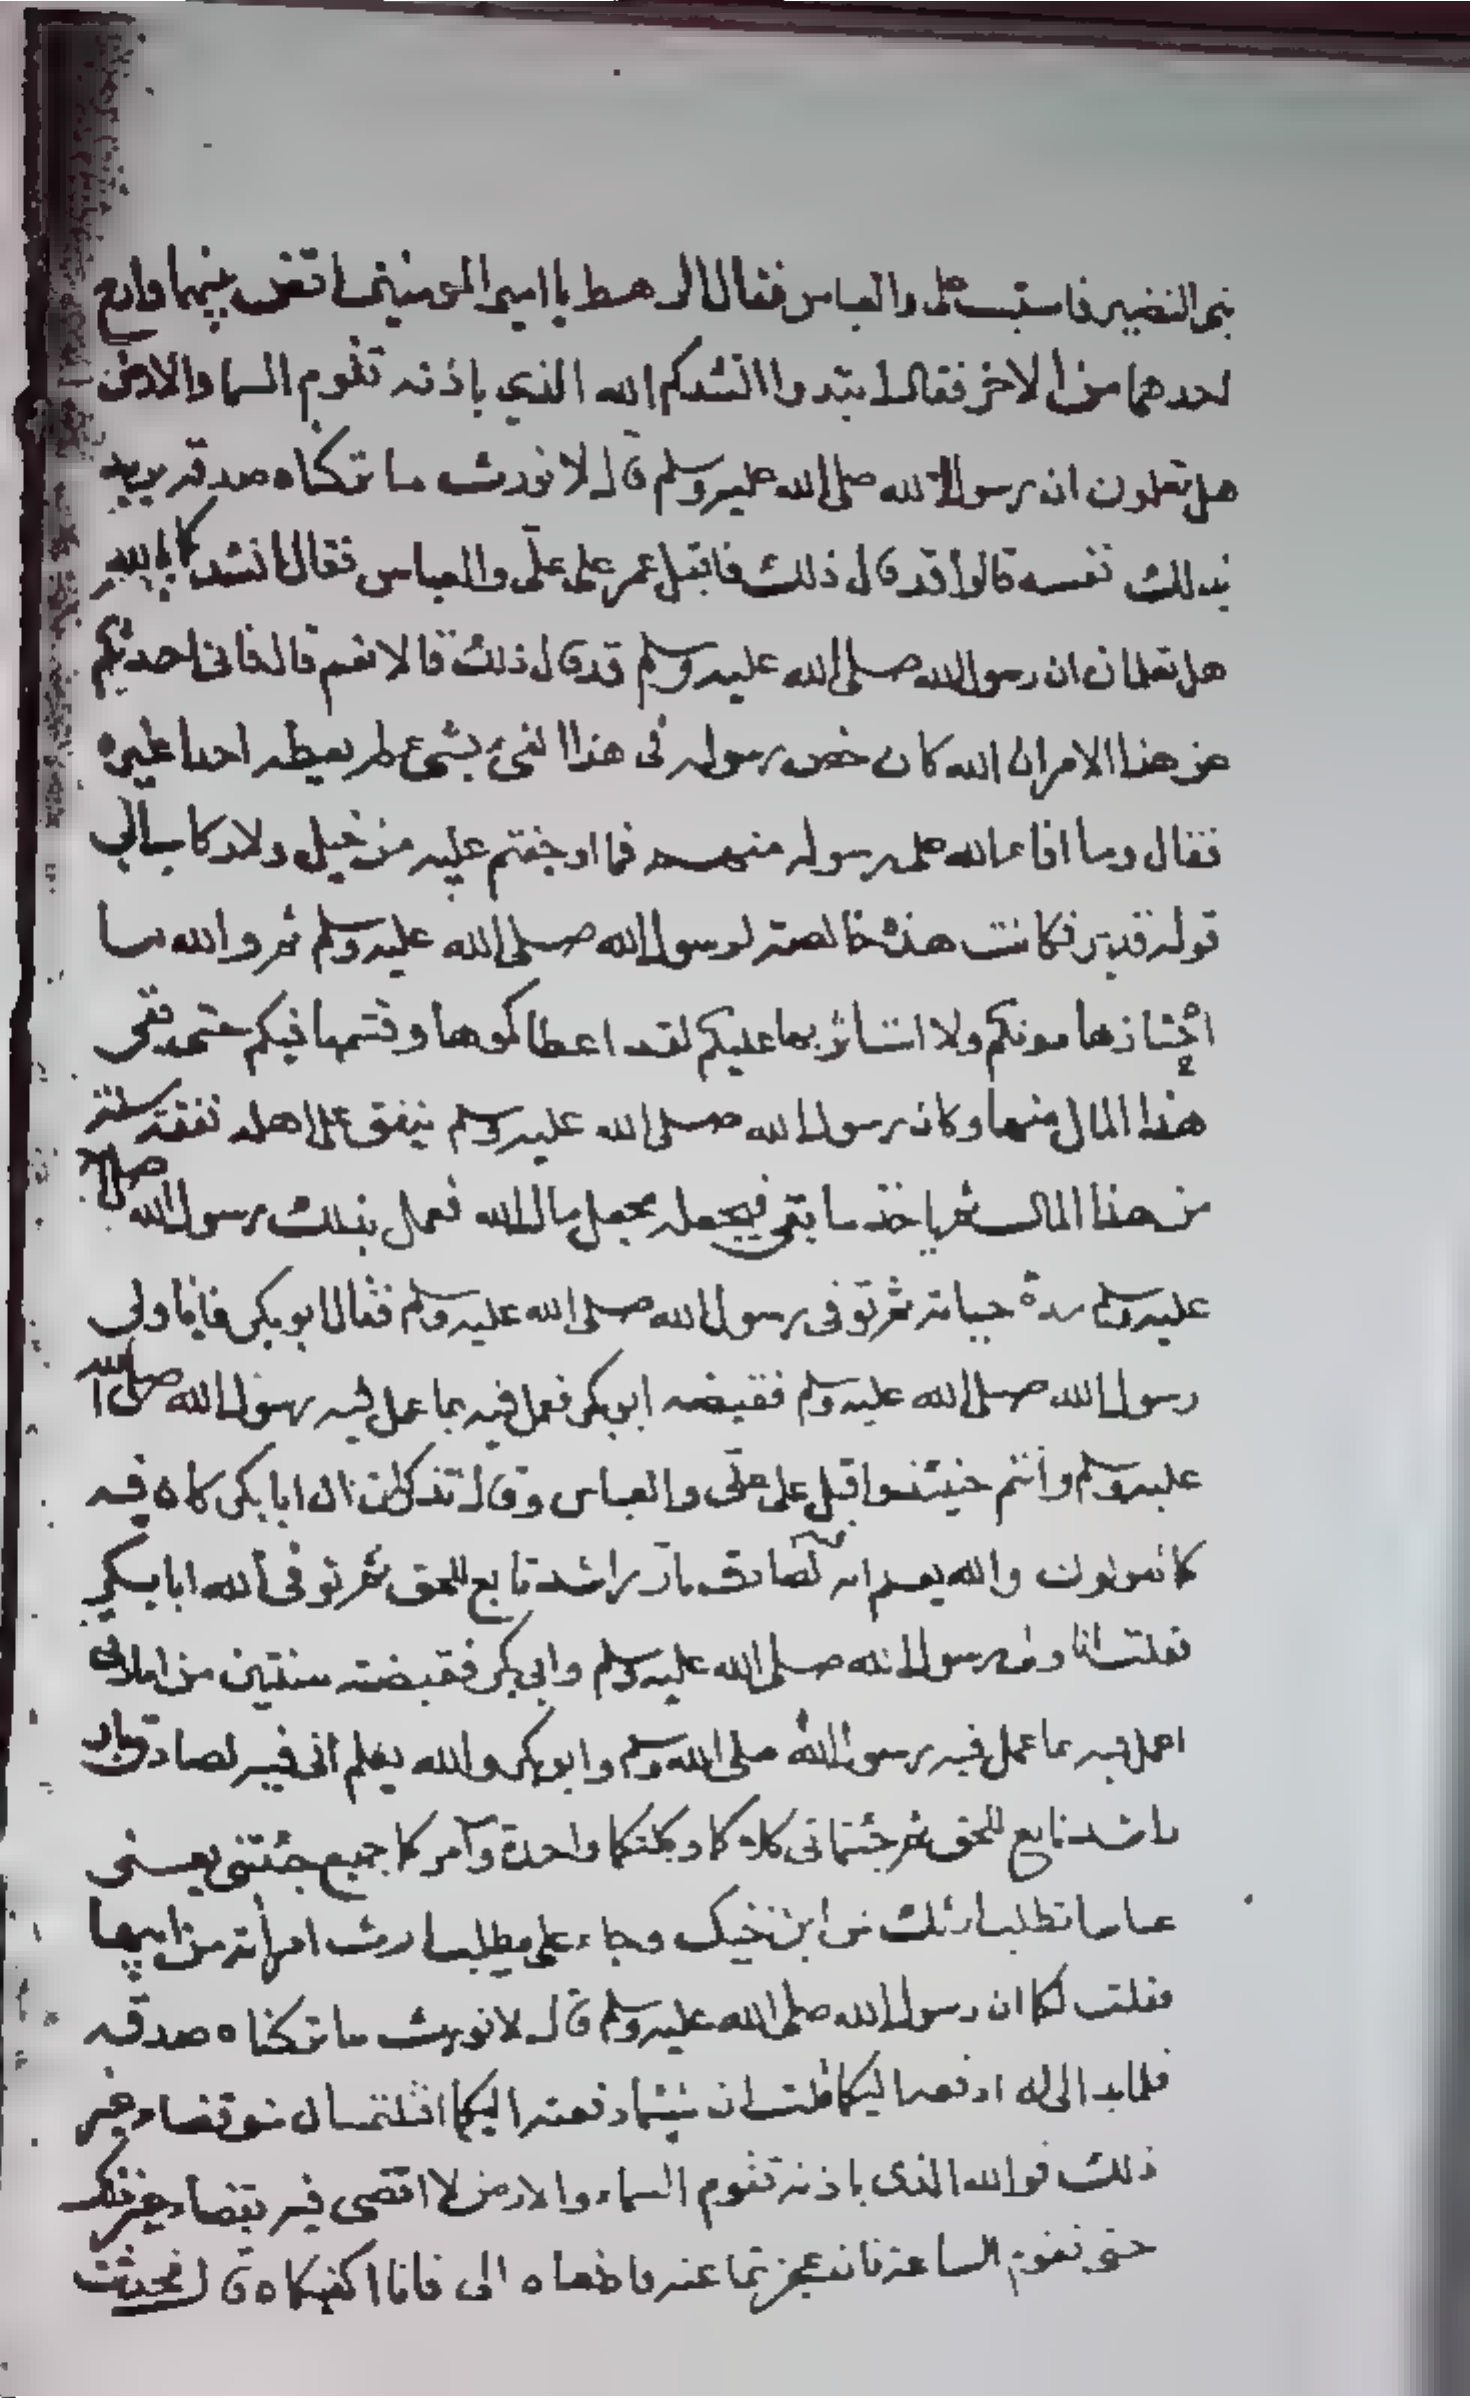 بني النضير فاستب على والعباس فقال الرهط يا امير المومنين اقض بينهما وارح
احدهما من الاخر فقال ابتدوا انشدكم الله الذي باذنه تقوم السما والارض
هل تعلمون ان رسول الله صلى الله عليه وسلم قال لا نورث ما تركناه صدقه يريد
بذلك نفسه قالوا قد قال ذلك فاقبل عمر على على والعباس فقال انشدكما بالله
هل تعلمان ان رسول الله صلى الله عليه وسلم قد قال ذلك قالا نعم قال فانى احدثكم
عن هذا الامر ان الله كان خص رسوله فى هذا الفئ بشئ لم يعطه احدا غيره
فقال وما افا الله على رسوله منهم فما اوجفتم عليه من خيل ولا ركاب الي
قوله قدير فكانت هذه خالصة لرسول الله صلى الله عليه وسلم ثم والله ما
احتازها دونكم ولا استاثر بها عليكم لقد اعطاكموها وقسمها فيكم حتى بقى
هذا المال منها وكان رسول الله صلى الله عليه وسلم ينفق على اهله نفقة سنته
من هذا المال ثم ياخذ ما بقى فيجعله مجعل مال الله فعمل بذلك رسول الله صلى الله
عليه وسلم مدة حياته ثم توفى رسول الله صلى الله عليه وسلم فقال ابو بكر فانا ولى
رسول الله صلى الله عليه وسلم فقبضه ابو بكر فعمل فيه بما عمل فيه رسول الله صلى الله
عليه وسلم وانتم حينئذ واقبل على على والعباس وقال تذكران ان ابا بكر كاه فيه
كما تقولون والله يعلم انه لصادق بار راشد تابع للحق ثم توفى الله ابا بكر
فقلت انا ولى رسول الله صلى الله عليه وسلم وابى بكر فقبضته سنتين من امارتى
اعمل فيه بما عمل فيه رسول الله صلى الله وسلم وابو بكر والله يعلم انى فيه لصادق بار
راشد تابع للحق ثم جئتمانى كلاكما وكلمتكما واحدة وامركما جميع جئتنى يعنى
عباسا تطلب ارثك من ابن خيك وجاء على يطلب ارث امرأته من ابيها
فقلت لكما ان رسول الله صلى الله عليه وسلم قال لا نورث ما تركناه صدقه
فلما بدا لى ان ادفعه اليكما قلت ان شئتما دفعته اليكما افتلتمسان منى قضاء غير
ذلك فوالله الذى باذنه تقوم السماء والارض لا اقضى فيه بقضاء غير ذلك
حتى تقوم الساعة فان عجزتما عنه فادفعاه الى فانا اكفيكماه قال فحدثت